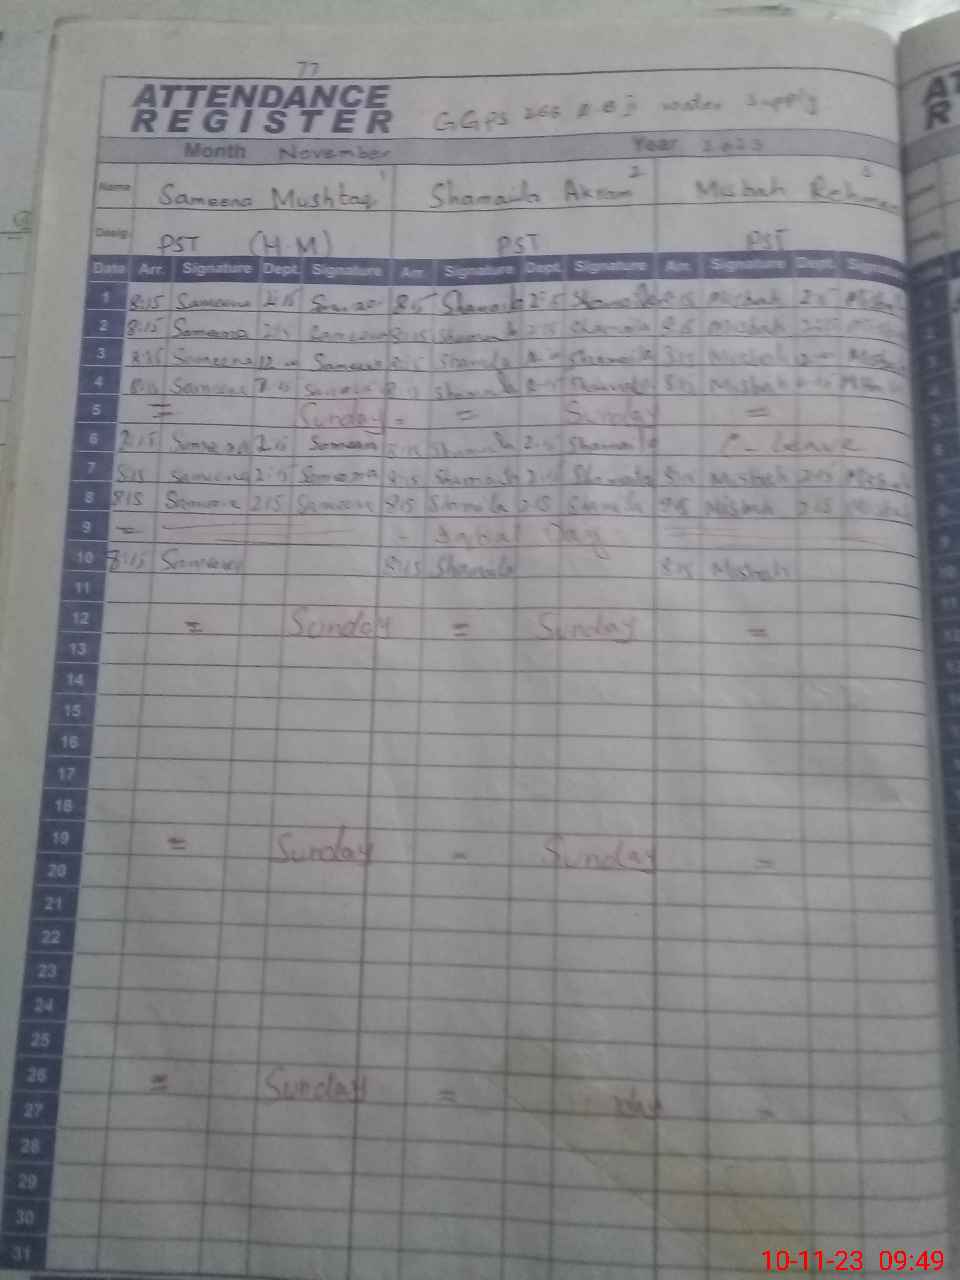 77
ATTENDANCE
REGISTER
GGPS 266 R.B water supply
Month November Year 2023
Name Sameena Mushtaq 1 Shamaila Akram 2 Misbah Rehman 3
Desig. PST (H.M) PST PST
Date Arr. Signature Dept. Signature Arr. Signature Dept. Signature Arr. Signature Dept. Signature
1 8:15 Sameena 2:15 8:15 Shamaila 2:15 Shamaila 8:15 Misbah 2:15 Misbah
2 8:15 Sameena 2:15 Sameena 8:15 Shamaila 2:15 Shamaila 8:15 Misbah 2:15
3 8:15 Sameena 12 Sameena 8:15 Shamaila Shamaila 8:15 Misbah 12 Misbah
4 8:15 Sameena 2:15 Sameena 8:15 Shamaila 2:15 Shamaila 8:15 Misbah Misbah
5 = Sunday - = Sunday =
6 Sameena 2:15 Sameena 8:15 Shamaila 2:15 Shamaila C-Leave
7 8:15 Sameena 2:15 Sameena 8:15 Shamaila 2:15 Shamaila 8:15 Misbah 2:15 Misbah
8 815 Sameena 215 Sameena 815 Shamila 215 Shamila 815 Misbah 215 Misbah
9 = - Iqbal Day
10 8:15 Sameena 8:15 Shamaila 8:15 Misbah
11
12 = Sunday = Sunday =
13
14
15
16
17
18
19 = Sunday - Sunday =
20
21
22
23
24
25
26 = Sunday = day -
27
28
29
30
31
10-11-23 09:49